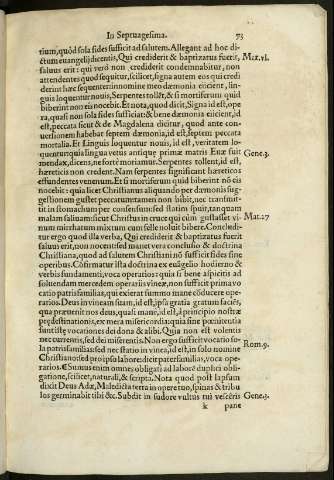 In Septuagesima. 73
tium, quòd sola fides sufficit ad salutem. Allegant ad hoc di
ctum euangelij dicentis, Qui crediderit & baptizatus fuerit, Mar. vl.
saluus erit: qui verò non crediderit condemnabitur, non
attendentes quod sequitur, scilicet, signa autem eos qui credi
derint hæc sequentur: in nomine meo dæmonia eiicient, lin-
guis loquentur nouis, Serpentes tollēt, & si mortiferum quid
biberint non eis nocebit. Et nota, quod dicit, Signa id est, ope
ra, quasi non sola fides sufficiat: & bene dæmonia eiicient, id
est, peccata sicut & de Magdalena dicitur, quod ante con-
uersionem habebat septem dæmonia, id est, septem peccata
mortalia. Et Linguis loquentur nouis, id est, veritatem lo-
quentur, quia lingua vetus antiquæ primæ matris Euæ fuit Gene. 3.
mendax, dicens, ne fortè moriamur. Serpentes tollent, id est,
hæreticis non credent. Nam serpentes significant hæreticos
effundentes venenum. Et si mortiferum quid biberint nō eis
nocebit: quia licet Christianus aliquando per dæmonis sug-
gestionem gustet peccatum, tamen non bibit, nec transmit-
tit in stomachum per consensum: sed statim spuit, tanquam
malam saliuam: sicut Christus in cruce qui cùm gustasset vi-
num mirrhatum mixtum cum felle noluit bibere. Concludi- Mat. 27
tur ergo quod illa verba, Qui crediderit & baptizatus fuerit
saluus erit, non nocent: sed manet vera conclusio & doctrina
Christiana, quod ad salutem Christiani nō sufficit fides sine
operibus. Cōfirmatur ista doctrina ex euāgelio hodierno &
verbis fundamenti, voca operarios: quia si bene aspicitis ad
soluendam mercedem operariis vineæ, non sufficit prima vo
catio patrifamilias, qui exierat summo mane cōducere ope-
rarios. Deus in vineam suam, id est, ipsa gratia gratum faciēs,
qua præuenit nos deus, quasi manè, id est, à principio nostræ
prædestinationis, ex mera misericordia: quia sine pœnitentia
sunt istæ vocationes dei dona & alibi. Quia non est volentis
nec currentis, sed dei miserentis. Non ergo sufficit vocatio so- Rom. 9.
la patrisfamilias: sed nec statio in vinea, id est, in solo nomine
Christiano: sed pro ipso labore: dicit paterfamilias, voca ope-
rarios. ¶ Sumus enim omnes obligati ad laborē duplici obli-
gatione, scilicet, naturali, & scripta. Nota quod post lapsum
dixit Deus Adæ, Maledicta terra in opere tuo, spinas & tribu
los germinabit tibi &c. Subdit in sudore vultus tui vescêris Gene. 3.
k pane